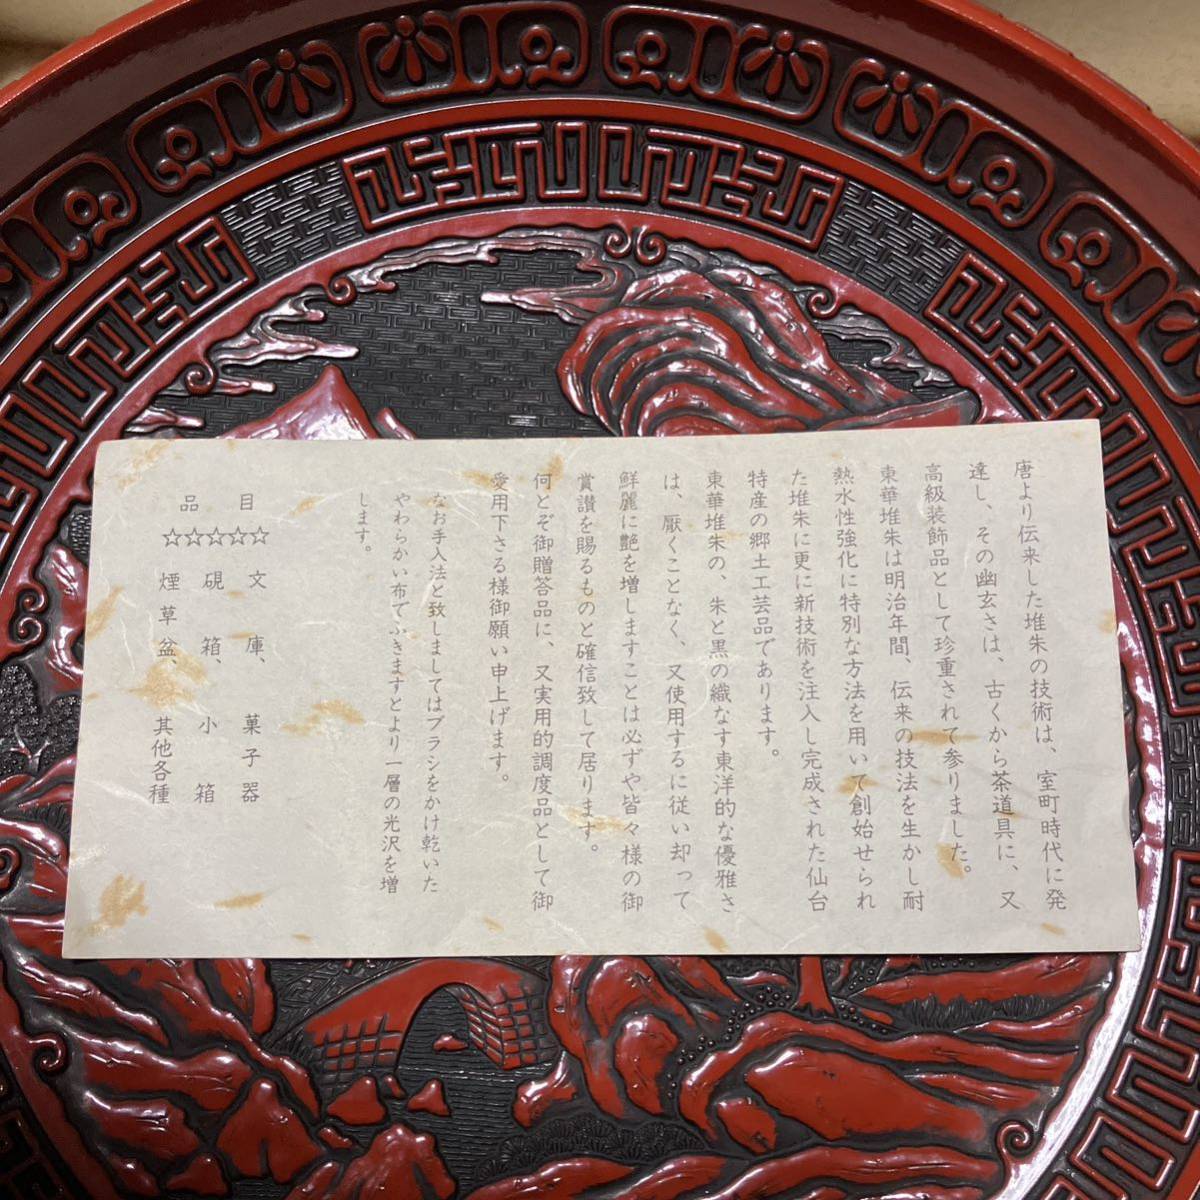 唐より伝来した堆朱の技術は、室町時代に発
達し、その幽玄さは、古くから茶道具に、又
高級装飾品として珍重されて参りました。
東華堆朱は明治年間、伝来の技法を生かし耐
熱水性強化に特別な方法を用いて創始せられ
た堆朱に更に新技術を注入し完成された仙台
特産の郷土工芸品であります。
東華堆朱の、朱と黒の織なす東洋的な優雅さ
は、厭くことなく、又使用するに従い却って
鮮麗に艶を増しますことは必ずや皆々様の御
賞讃を賜るものと確信致して居ります。
何とぞ御贈答品に、又実用的調度品として御
愛用下さる様御願い申上げます。
なお手入法と致しましてはブラシをかけ乾いた
やわらかい布でふきますとより一層の光沢を増
します。
品目
☆☆☆☆☆
文庫、菓子器
硯箱、小箱
煙草盆、其他各種